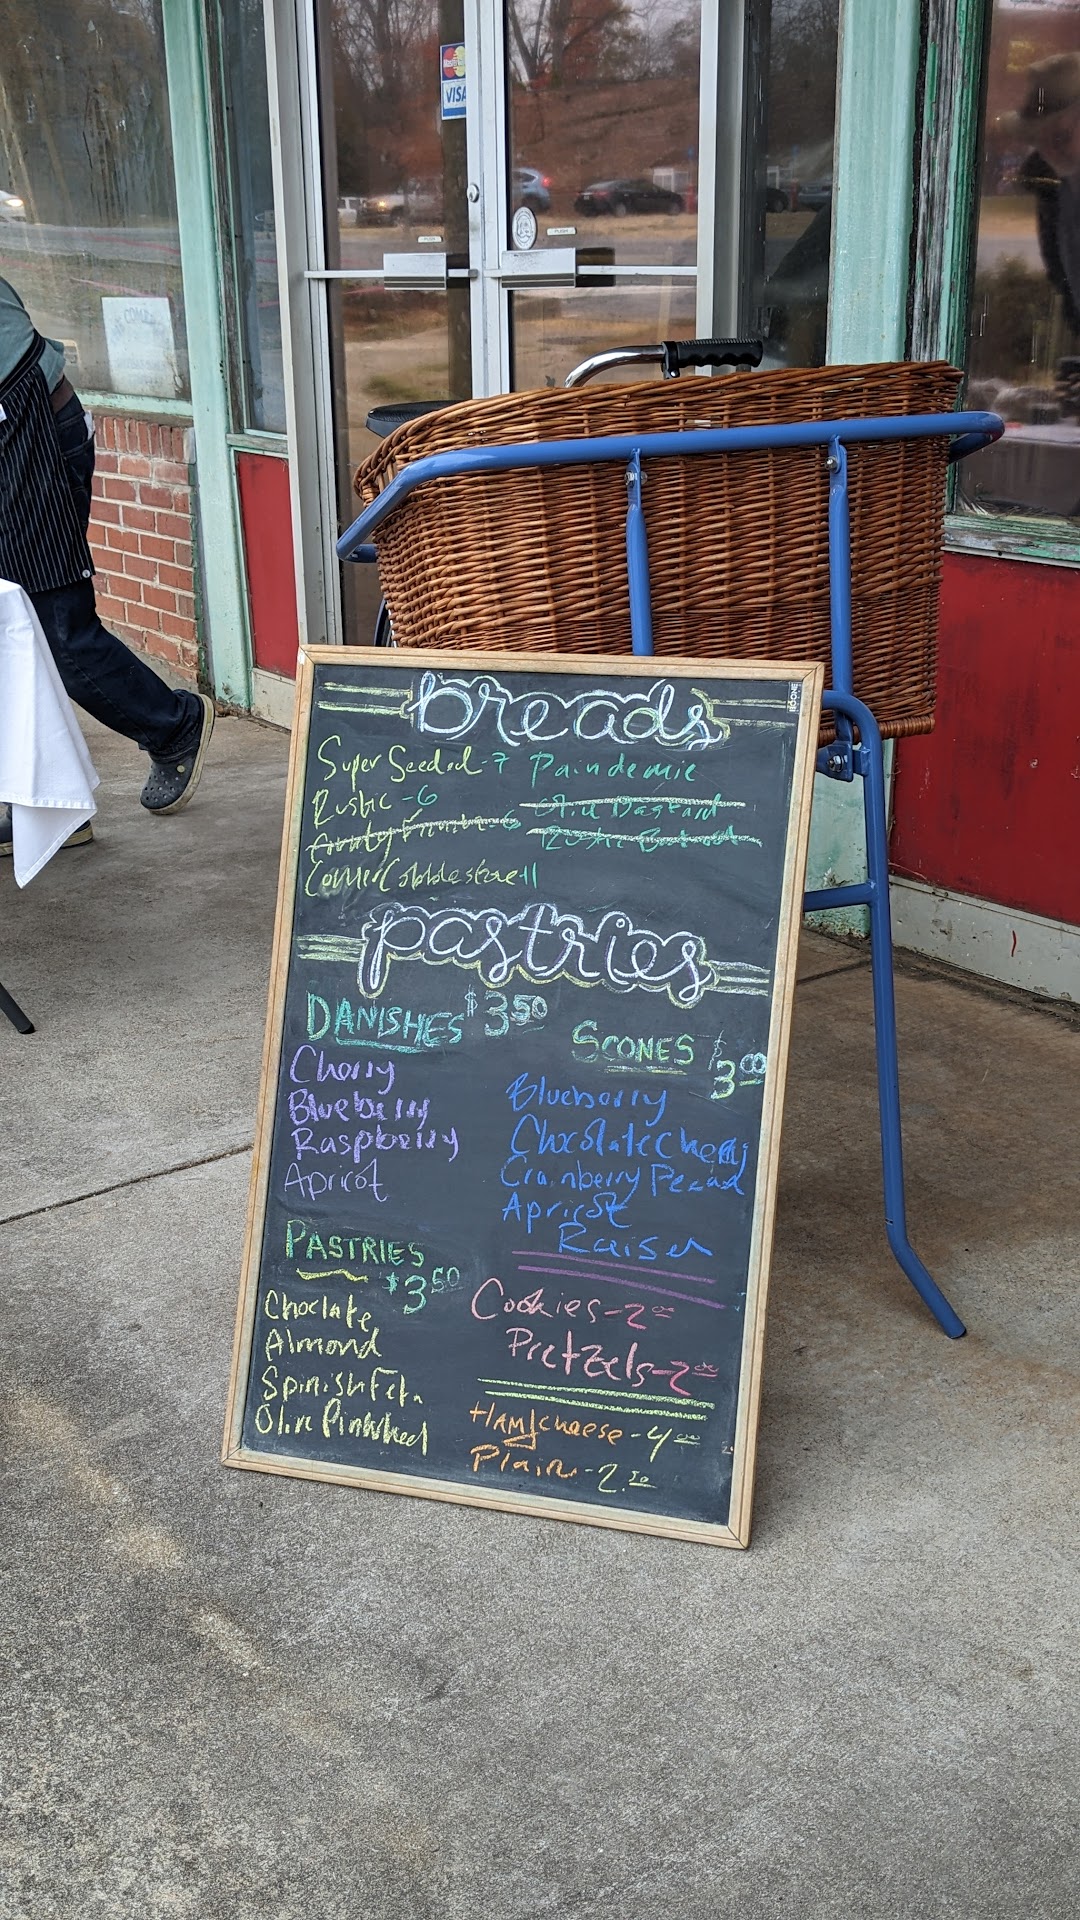 VISA
breads
Super Seeded-7
Rustic -6
Paindemic
pastries
DANISHES $3.50
Cherry
Blueberry
Raspberry
Apricot
SCONES $3.00
Blueberry
Chocolate Cherry
Cranberry Pecan
Apricot
Raisen
PASTRIES
$3.50
Choclate
Almond
Spinish Feta
Olive Pinwheel
Cookies-2.00
Pretzels-2.00
HAM/cheese-4.00
Plain-2.50